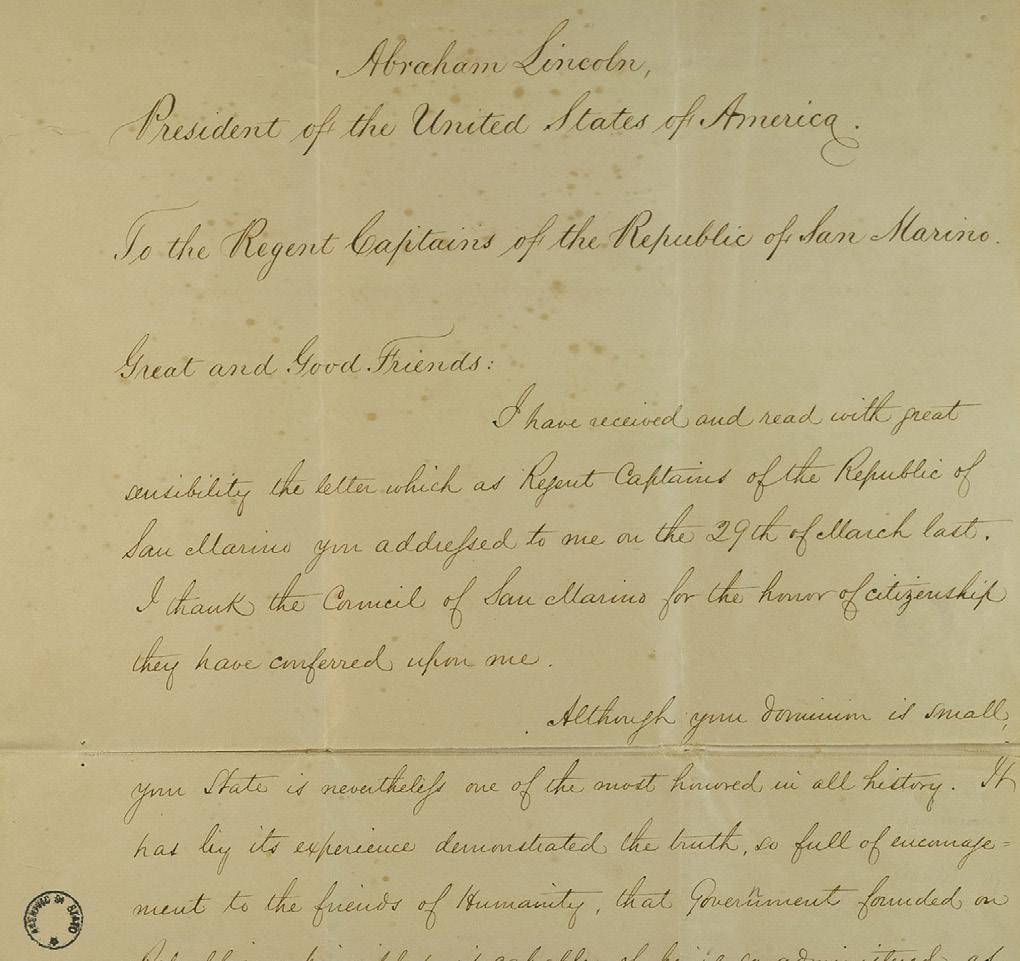 Abraham Lincoln,
President of the United States of America.
To the Regent Captains of the Republic of San Marino.
Great and Good Friends:
I have received and read with great
sensibility the letter which as Regent Captains of the Republic of
San Marino you addressed to me on the 29th of March last.
I thank the Council of San Marino for the honor of citizenship
they have conferred upon me.
Although your dominion is small,
your State is nevertheless one of the most honored in all history. It
has by its experience demonstrated the truth, so full of encourage=
ment to the friends of Humanity, that Government founded on
administered as
ARCHIVIO DI STATO